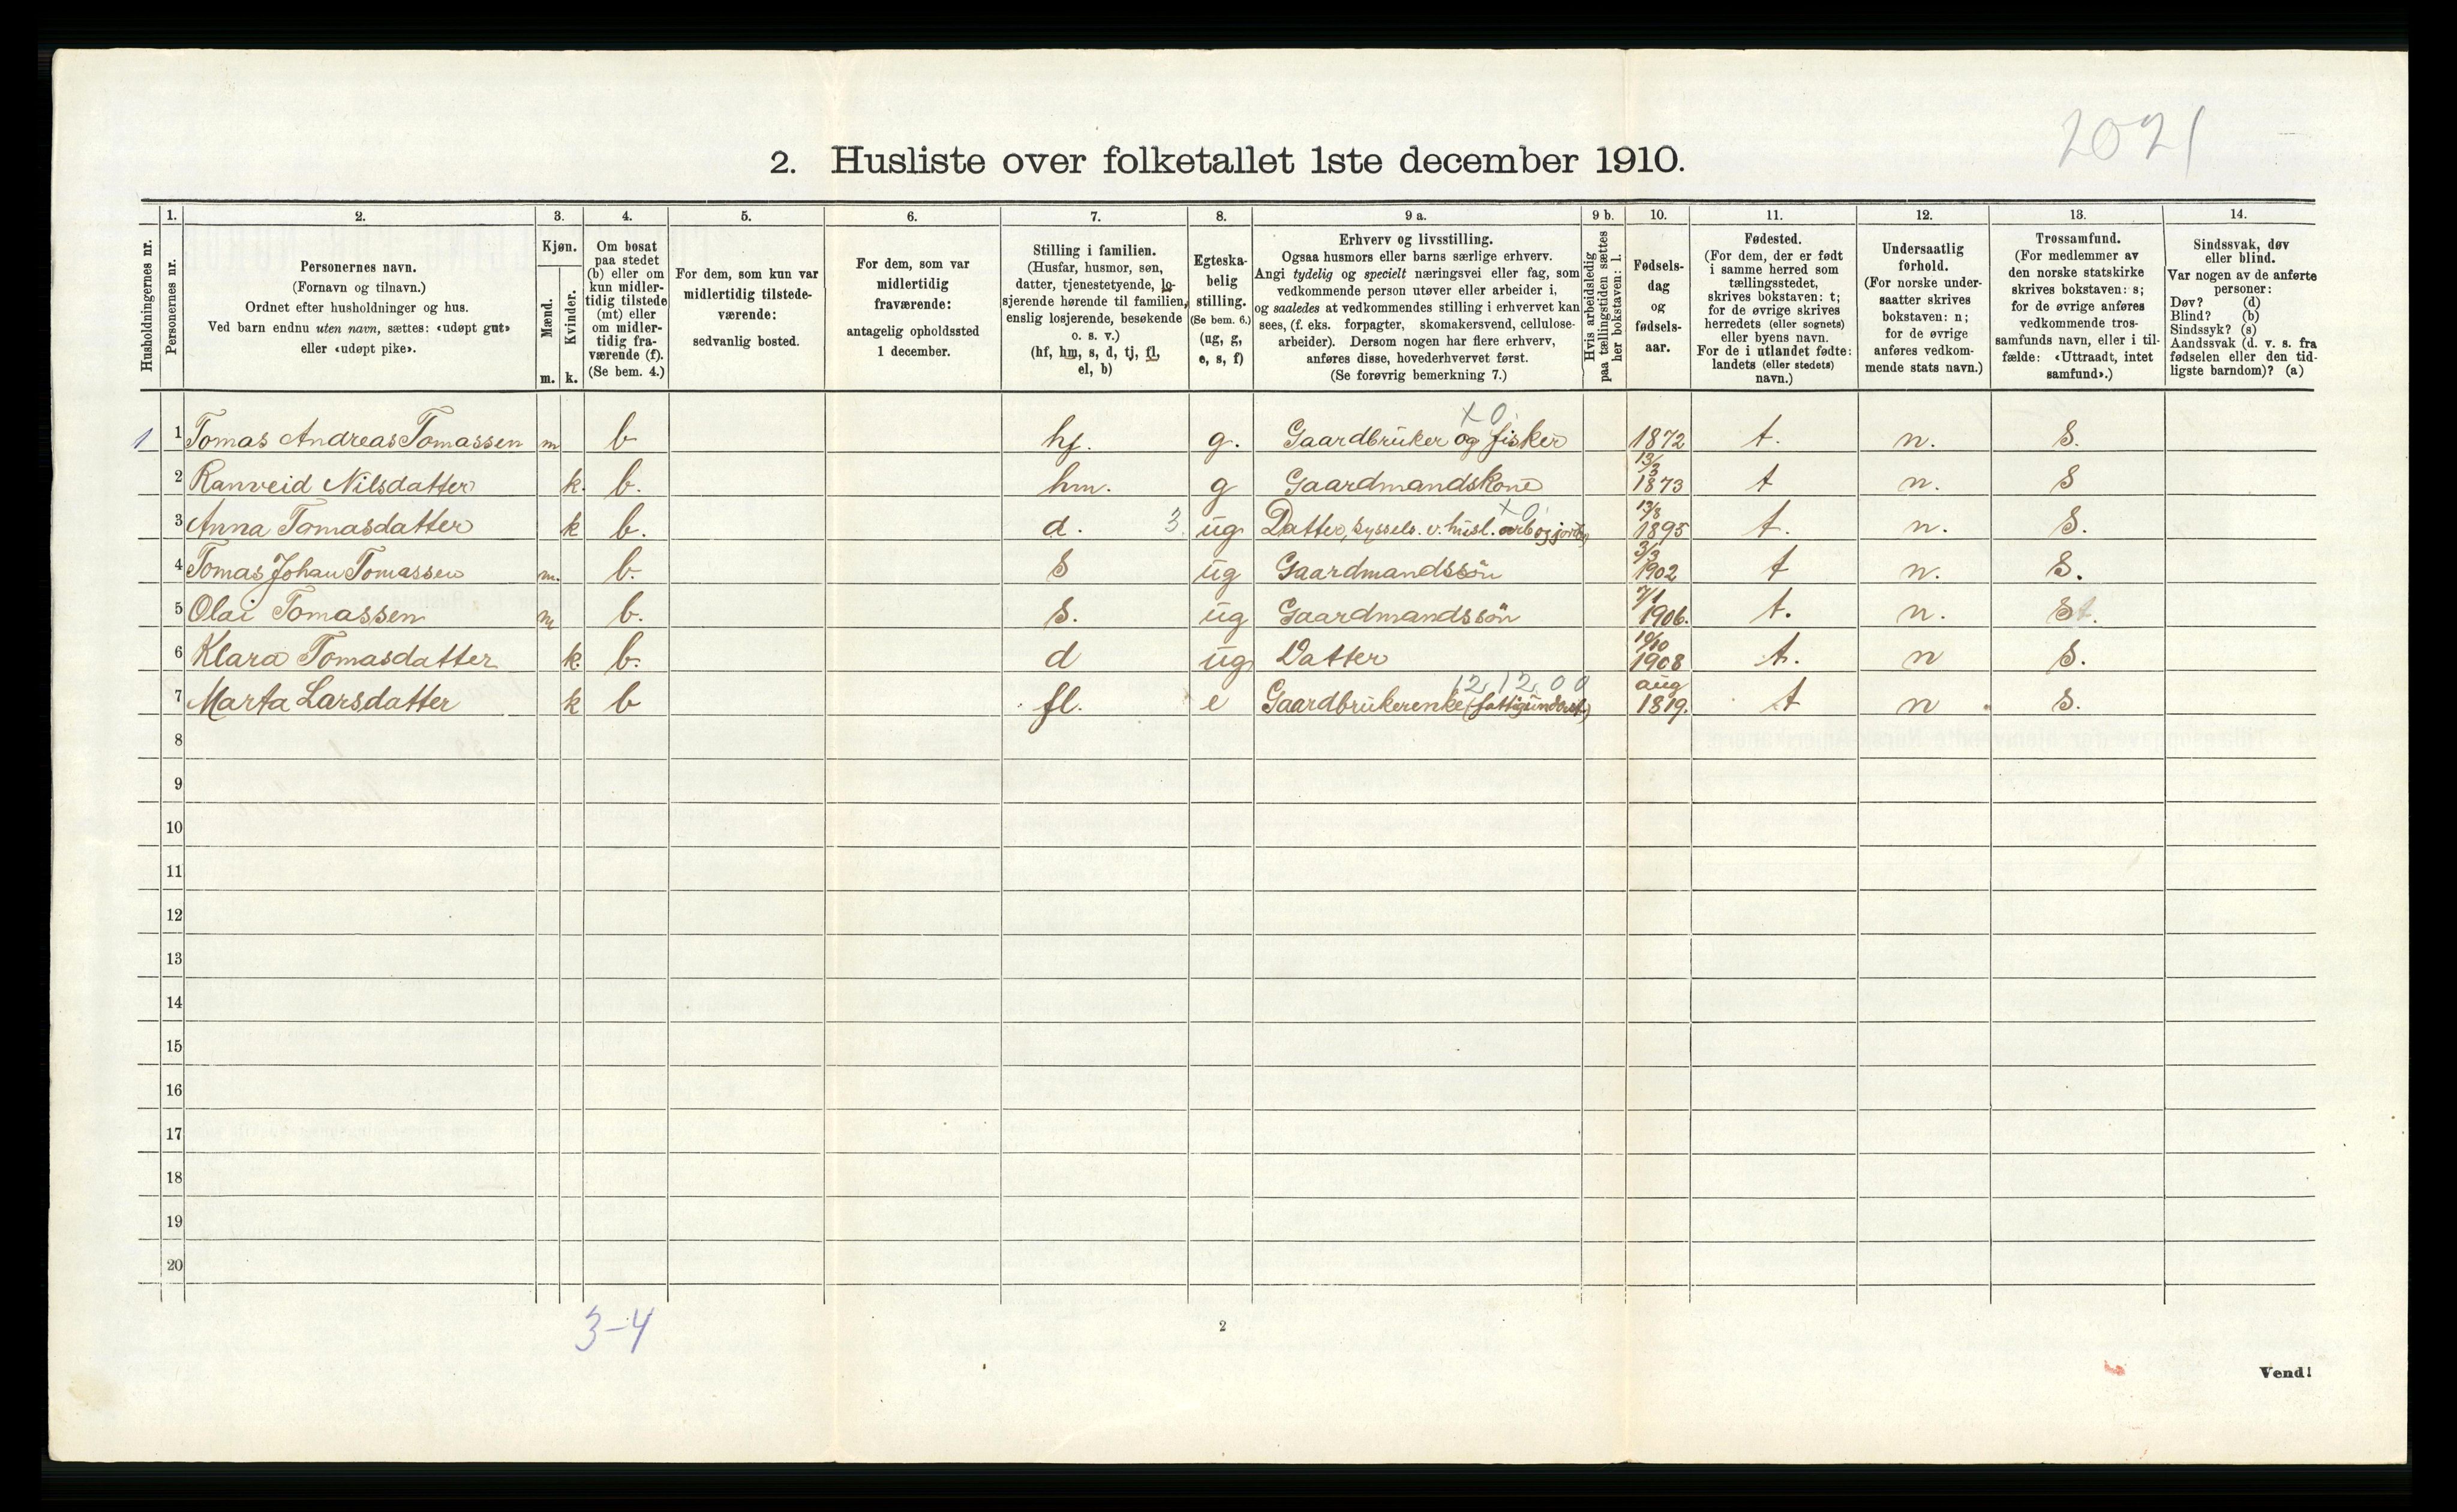 2021
2. Husliste over folketallet 1ste december 1910.
1. 2. 3. 4. 5. 6. 7. 8. 9 a. 9 b. 10. 11. 12. 13. 14.
Husholdningernes nr.
Personernes nr.
Personernes navn.
(Fornavn og tilnavn.)
Ordnet efter husholdninger og hus.
Ved barn endnu uten navn, sættes: «udøpt gut»
eller «udøpt pike».
Kjøn.
Mænd.
Kvinder.
m. k.
Om bosat
paa stedet
(b) eller om
kun midler-
tidig tilstede
(mt) eller
om midler-
tidig fra-
værende (f).
(Se bem. 4.)
For dem, som kun var
midlertidig tilstede-
værende:
sedvanlig bosted.
For dem, som var
midlertidig
fraværende:
antagelig opholdssted
1 december.
Stilling i familien.
(Husfar, husmor, søn,
datter, tjenestetyende, lo-
sjerende hørende til familien,
enslig losjerende, besøkende
o. s. v.)
(hf, hm, s, d, tj, fl,
el, b)
Egteska-
belig
stilling.
(Se bem. 6.)
(ug, g,
e, s, f)
Erhverv og livsstilling.
Ogsaa husmors eller barns særlige erhverv.
Angi tydelig og specielt næringsvei eller fag, som
vedkommende person utøver eller arbeider i,
og saaledes at vedkommendes stilling i erhvervet kan
sees, (f. eks. forpagter, skomakersvend, cellulose-
arbeider). Dersom nogen har flere erhverv,
anføres disse, hovederhvervet først.
(Se forøvrig bemerkning 7.)
Hvis arbeidsledig
paa tællingstiden sættes
her bokstaven: l.
Fødsels-
dag
og
fødsels-
aar.
Fødested.
(For dem, der er født
i samme herred som
tællingsstedet,
skrives bokstaven: t;
for de øvrige skrives
herredets (eller sognets)
eller byens navn.
For de i utlandet fødte:
landets (eller stedets)
navn.)
Undersaatlig
forhold.
(For norske under-
saatter skrives
bokstaven: n;
for de øvrige
anføres vedkom-
mende stats navn.)
Trossamfund.
(For medlemmer av
den norske statskirke
skrives bokstaven: s;
for de øvrige anføres
vedkommende tros-
samfunds navn, eller i til-
fælde: «Uttraadt, intet
samfund».)
Sindssvak, døv
eller blind.
Var nogen av de anførte
personer:
Døv? (d)
Blind? (b)
Sindssyk? (s)
Aandssvak (d. v. s. fra
fødselen eller den tid-
ligste barndom)? (a)
x 0
1 1 Tomas Andreas Tomassen m b hf. g. Gaardbruker og fisker 1872 t. n. S.
13/3
2 Ranveid Nilsdatter k. b. hm. g Gaardmandskone 1873 t n. S
x 0 13/8
3 Anna Tomasdatter k b. d. 3 ug Datter, syssels. v. husl. arb og jordb, 1895 t. n. S.
3/3
4 Tomas Johan Tomassen m. b. S ug Gaardmandssön 1902 t n. S.
7/1
5 Olai Tomassen m b. S. ug Gaardmandssön 1906. t. n. S.
10/10
6 Klara Tomasdatter k. b. d ug Datter 1908 t. n S.
12,12,00 aug
7 Marta Larsdatter k b fl. e Gaardbrukerenke (fattigunderst) 1819. t n S.
8
9
10
11
12
13
14
15
16
17
18
19
20
3-4
2
Vend!